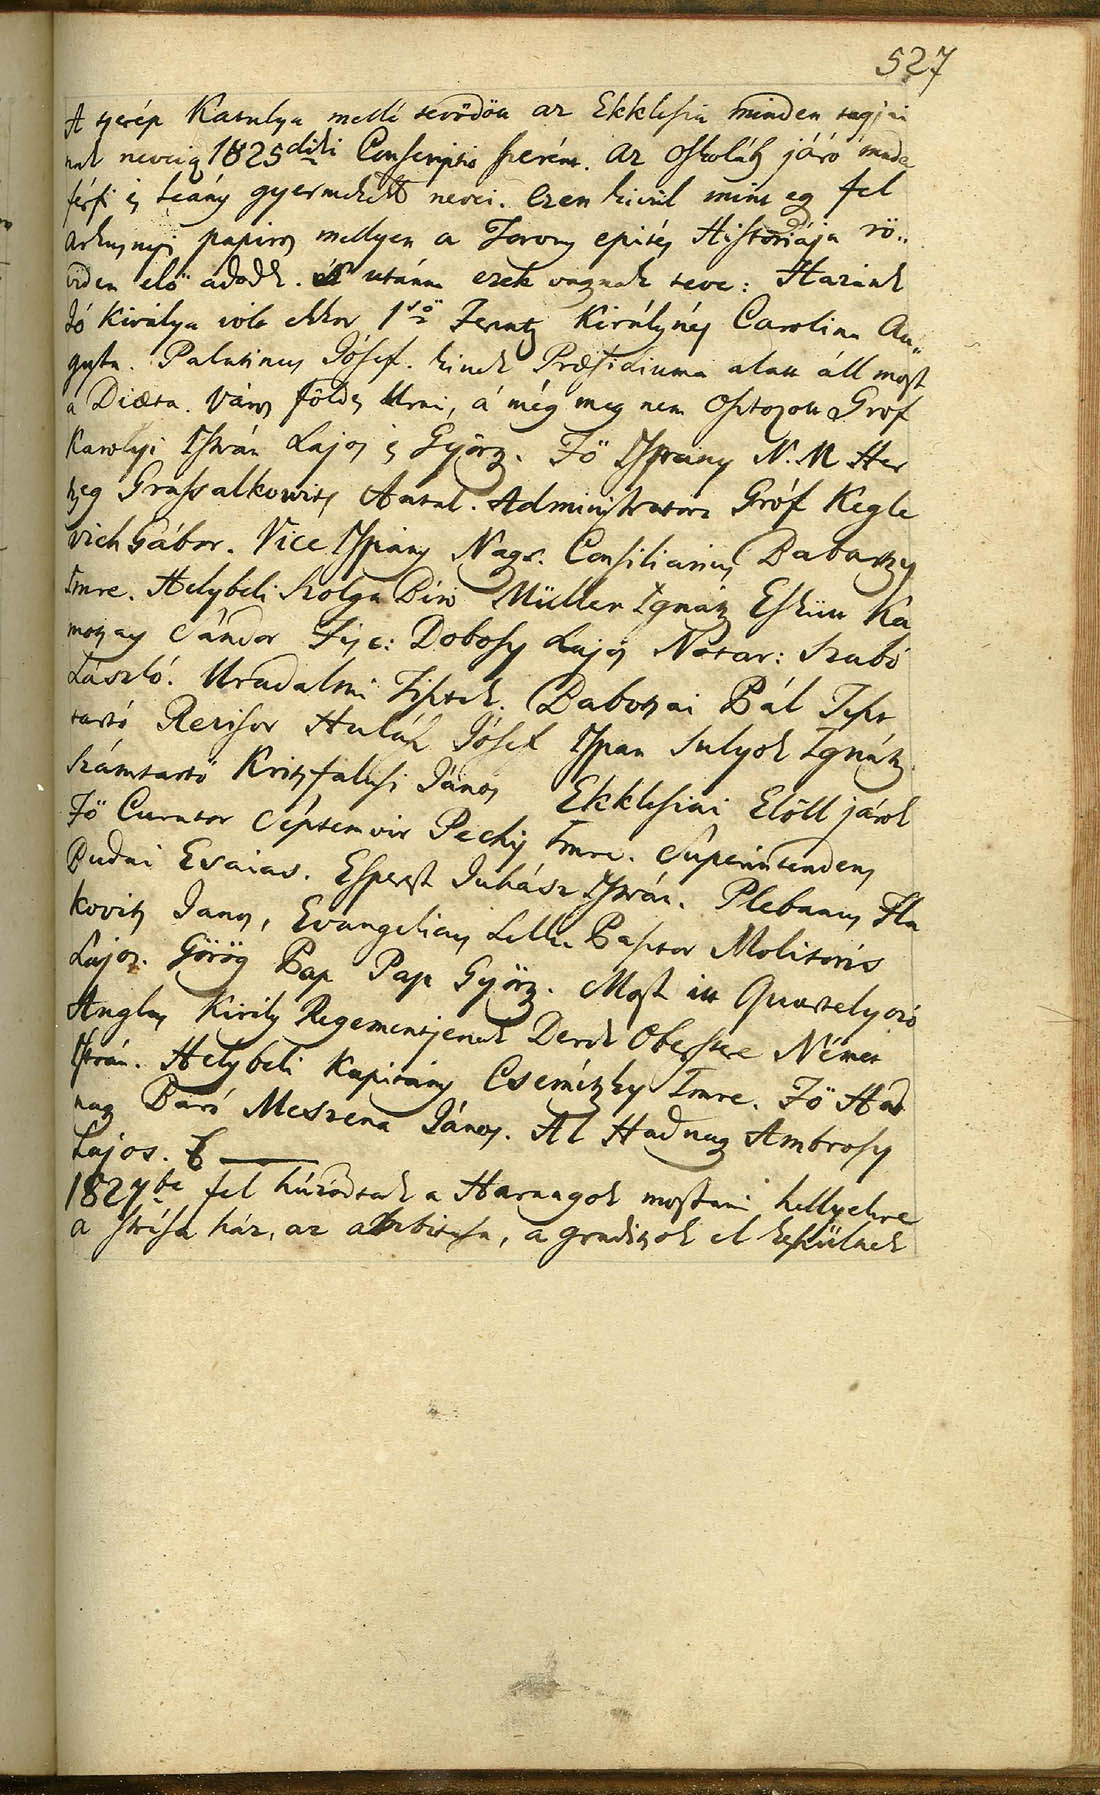 527
A tserép Katulya mellé tevődött az Ekklesia minden tagjai
nak neveiq 1825diki Conscriptio szerént. Az oskoláb járó
férfi és leány gyermekek nevei. Ezen kivűl mint eg fel
árkusnyi papiros mellyen a Torony epités Historiája rö„
viden elő adodk. utánna ezek vagynak téve: Hazánk
Jó Királya volt ekkor 1ső Ferentz Királynéj Carolina Au„
gusta. Palatinus Jósef. kinek Præsidiuma alatt áll most
a Diæta. Város földes Urai, á még meg nem osztozott Grof
Karolyi István Lajos és Györg. Fő Ispány N. M. Her
tzeg Grassalkovits Antal. Administrator Gróf Kegle
vich Gábor. Vice Ispány Nags. Consiliarius Babarzy
Imre. Helybéli Szolga Biró Müller Ignátz Eskütt Ka
motsay Sándor Fisc: Dobosy Lajos Notar: Szabó
László. Uradalmi Tisztek. Babotsai Pál Tiszt
tartó Revisor Huláh Jósef Ispan Sulyok Ignátz.
Számtartó Kritsfalusi János Ekklesiai Elöll járok
Fő Curator Septemvir Péchy Imre. Superintendens
Budai Esaias. Esperest Juhász István. Plebanus Hla
kovits Janos, Evangelicus Lelki Pasztor Molitoris
Lajos. Görög Pap Pap Györg. Most itt Quartelyozó
Anglus Király Regementjenek Derék Oberstere Német
István. Helybeli Kapitány Csemitzky Imre. Fő Had
nag Báró Meszena János. Al Hadnag Ambrosy
Lajos.
1827be fel húzódtak a Harangok mostani hellyekre
a strása ház, az , a graditsok el készültek